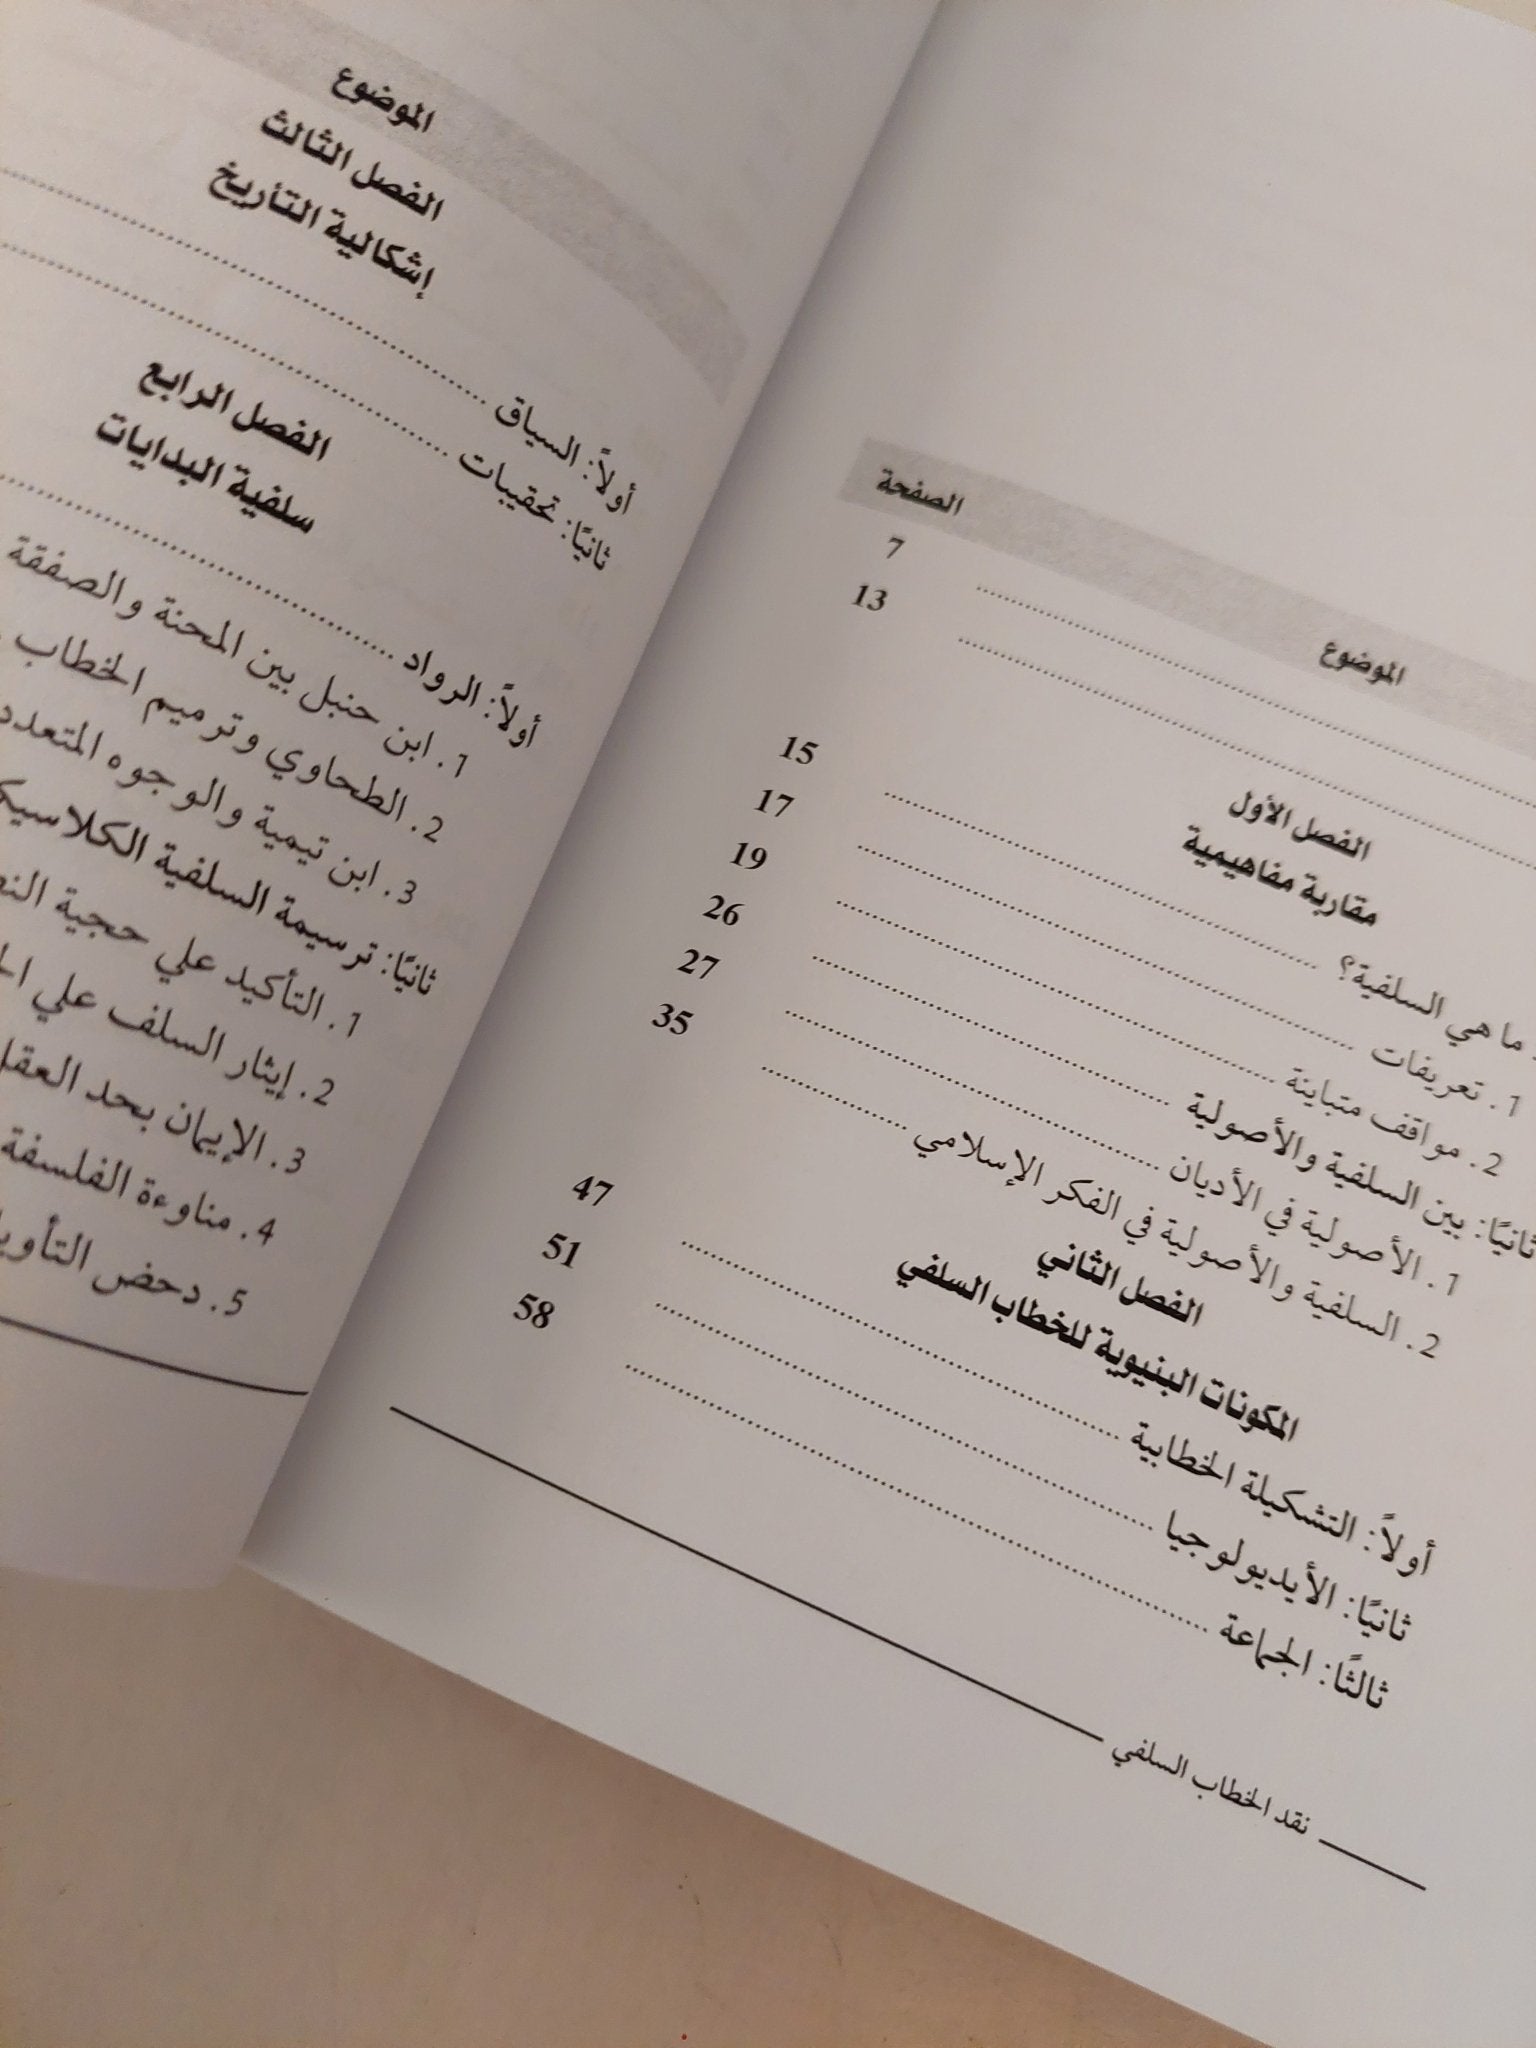 الموضوع الصفحة
7
13
الفصل الأول
مقاربة مفاهيمية
ما هي السلفية؟ 15
1. تعريفات 17
2. مواقف متباينة 19
ثانيًا: بين السلفية والأصولية 26
1. الأصولية في الأديان 27
2. السلفية والأصولية في الفكر الإسلامي 35
الفصل الثاني
المكونات البنيوية للخطاب السلفي
أولاً: التشكيلة الخطابية 47
ثانيًا: الأيديولوجيا 51
ثالثًا: الجماعة 58
نقد الخطاب السلفي
الموضوع
الفصل الثالث
إشكالية التأريخ
أولاً: السياق
ثانيًا: تحقيبات
الفصل الرابع
سلفية البدايات
أولاً: الرواد
1. ابن حنبل بين المحنة والصفقة
2. الطحاوي وترميم الخطاب
3. ابن تيمية والوجوه
ثانيًا: ترسيمة السلفية
1. التأكيد علي حجية
2. إيثار السلف علي
3. الإيمان بحد
4. مناوءة الفلسفة
5. دحض